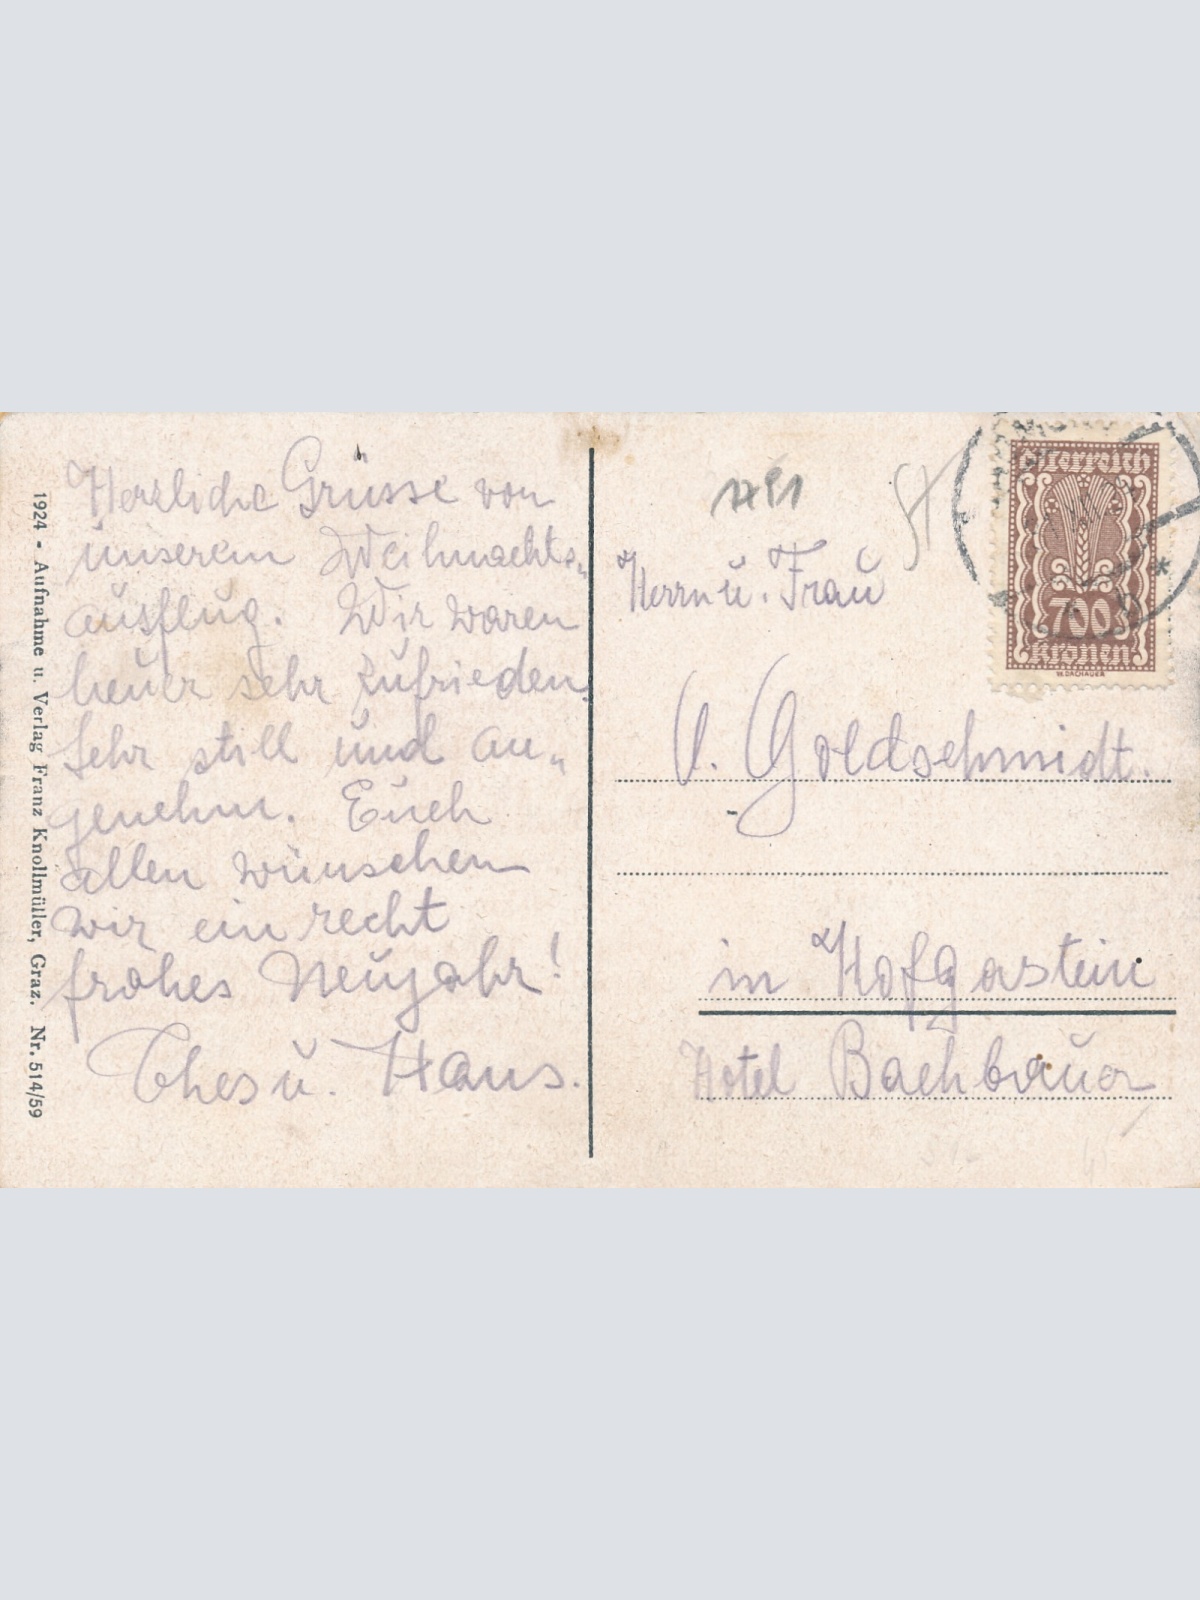 1924 - Aufnahme u. Verlag Franz Knollmüller, Graz. Nr. 514/59
Herzliche Grüsse von
unserem Weihnachts„
ausflug. Wir waren
heuer sehr zufrieden,
sehr still und an„
genehm. Euch
allen wünschen
wir ein recht
frohes Neujahr!
u. Hans.
Österreich
700
Kronen
W. DACHAUER
Herrn u. Frau
Goldschmidt.
in Hofgastein
Hotel Bachbauer